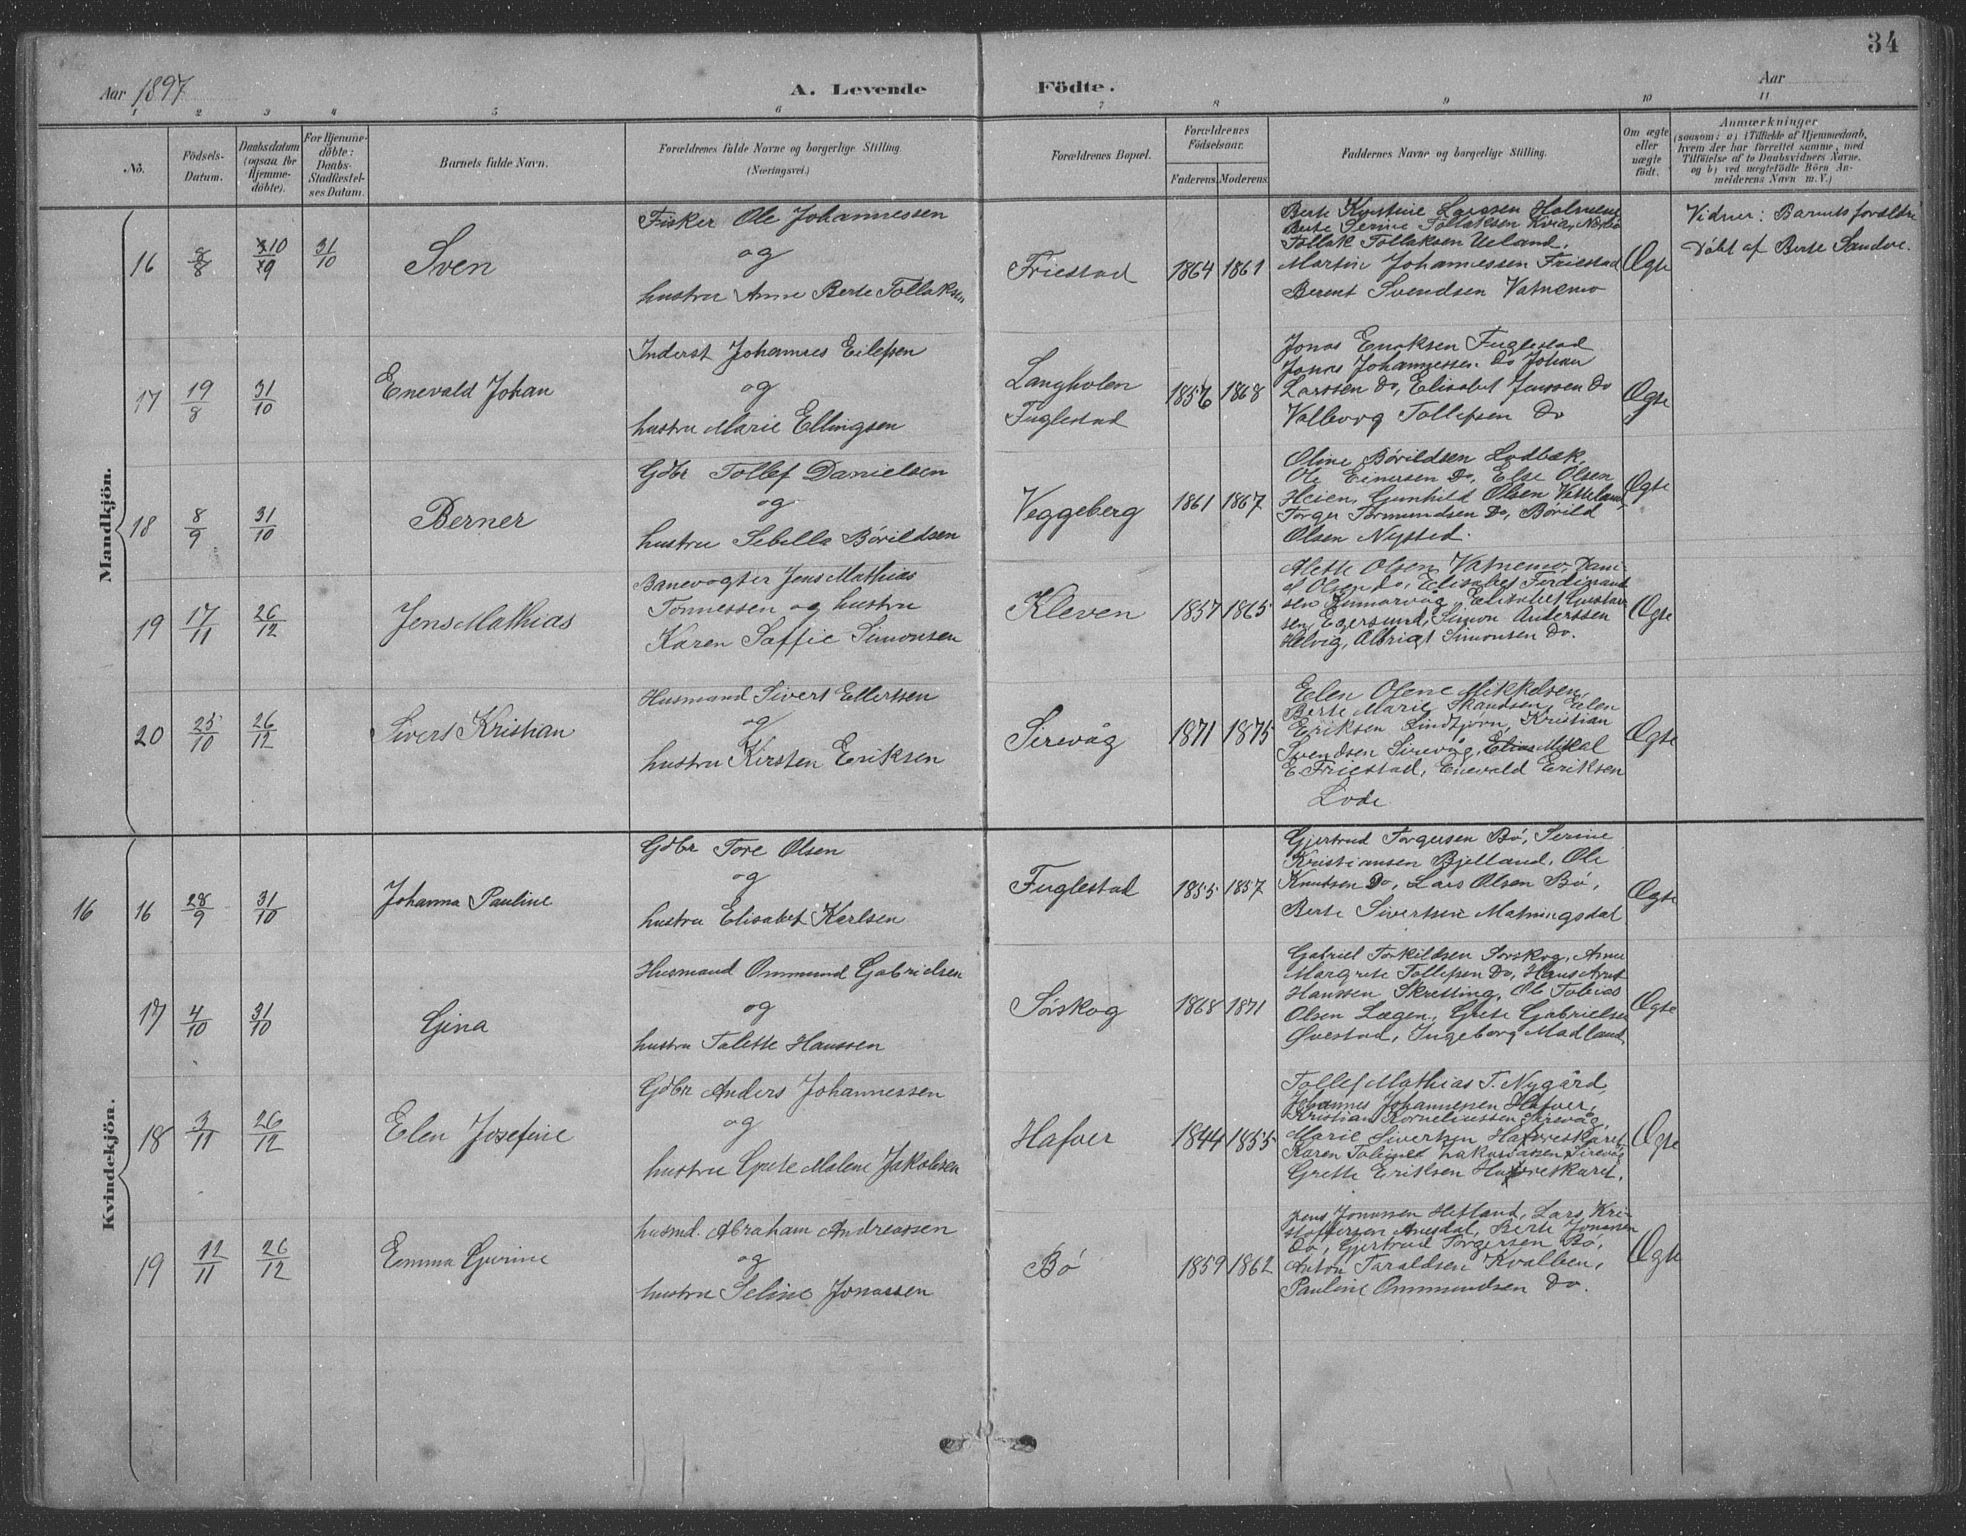 34
Aar 1897
A. Levende Födte.
Aar
1 2 3 4 5 6 7 8 9 10 11
No.
Födsels-
Datum.
Daabsdatum
(ogsaa for
Hjemme-
döbte).
For Hjemme-
döbte:
Daabs-
Stadfæstel-
ses Datum.
Barnets fulde Navn.
Forældrenes fulde Navne og borgerlige Stilling.
(Næringsvei.)
Forældrenes Bopæl.
Forældrenes
Födselsaar.
Faderens. Moderens.
Faddernes Navne og borgerlige Stilling.
Om ægte
eller
uægte
födt.
Anmærkninger
(saasom: a) i Tilfælde af Hjemmedaab,
hvem der har forrettet samme, med
Tilföielse af to Daabsvidners Navne,
og b) ved uægtefödte Börn An-
melderens Navn m. V.)
Mandkjön.
16 8/8 10/9 31/10 Sven
Fisker Ole Johannessen
og
hustru Anne Berte Tollaksen
Friestad 1864 1861
Berte Kristine Larssen Holmene
Berte Serine Tollaksen Kvia, Nærbø
Tollak Tollaksen Ueland,
Martin Johannessen Friestad
Berent Svendsen Vatnemo
Ægte
Vidner: Barnets forældre
Døbt af Berte Sandve.
17 19/8 31/10 Enevald Johan
Inderst Johannes Eilefsen
og
hustru Marie Ellingsen
Langholen
Fuglestad
1856 1868
Jonas Enoksen Fuglestad
Jonas Johannessen Do Johan
Larssen Do, Elisabet Jenssen Do
Valborg Tollefsen Do
Ægte
18 8/9 31/10 Berner
Gdbr Tollef Danielsen
og
hustru Sebella Børildsen
Veggeberg 1861 1867
Oline Børildsen Lodbæk
Ole Einersen Do, Else Olsen
Heien, Gunhild Olsen
Torger Tormundsen Do, Børild
Olsen Nysted.
Ægte
19 17/11 26/12 Jens Mathias
Banevogter Jens Mathias
Tønnessen og hustru
Karen Saffie Simonsen
Kleven 1857 1865
Alette Olsen Vatnemo, Dani-
el Olsen Do, Elisabet Ferdinand-
sen, Elisabet Gustav-
sen, Egersund, Simon Anderssen
Helvig, Albrigt Simonsen Do.
Ægte
20 25/10 26/12 Sivert Kristian
Husmand Sivert Ellertsen
og
hustru Kirsten Eriksen
Sirevåg 1871 1875
Elen Olene Mikkelsen,
Berte Marie Skandsen, Elen
Eriksen Lindtjørn, Kristian
Svendsen Sirevåg, Elias Mikal
E. Friestad, Enevald Eriksen
Lode
Ægte
Kvindekjön.
16 16 28/9 31/10 Johanna Pauline
Gdbr Tore Olsen
og
hustru Elisabet Karlsen
Fuglestad 1855 1857
Gjertrud Torgersen Bø, Serine
Kristiansen Bjelland, Ole
Knudsen Do, Lars Olsen Bø,
Berte Sivertsen Matningsdal
Ægte
17 4/10 31/10 Gina
Husmand Ommund Gabrielsen
og
hustru Talette Hanssen
Sørskog 1868 1871
Gabriel Torkildsen Sørskog, Anne
Margrete Tollefsen Do, Hans Arnt
Hanssen Skretting, Ole Tobias
Olsen Lægen, Grete Gabrielsen
Øvestad, Ingeborg Madland,
Ægte
18 3/11 26/12 Elen Josefine
Gdbr Anders Johannessen
og
hustru Grete Malene Jakobsen
Hafver 1844 1855
Tollef Mathias T. Nygård,
Johannes Johannessen Hafver,
Kristian Korneliussen Sirevåg,
Marie Sivertsen Hafvreskaret
Karen Tobine Zakariassen Sirevåg
Grette Eriksen Hafvreskaret.
Ægte
19 12/11 26/12 Emma Gurine
husmd. Abraham Andreassen
og
hustru Seline Jonassen
Bø 1859 1862
Jens Jonassen Hetland, Lars Kri-
stoffersen Aarsdal, Berte Jonassen
Do, Gjertrud Torgersen Bø,
Anton Taraldsen Kvalben,
Pauline Ommundsen Do.
Ægte